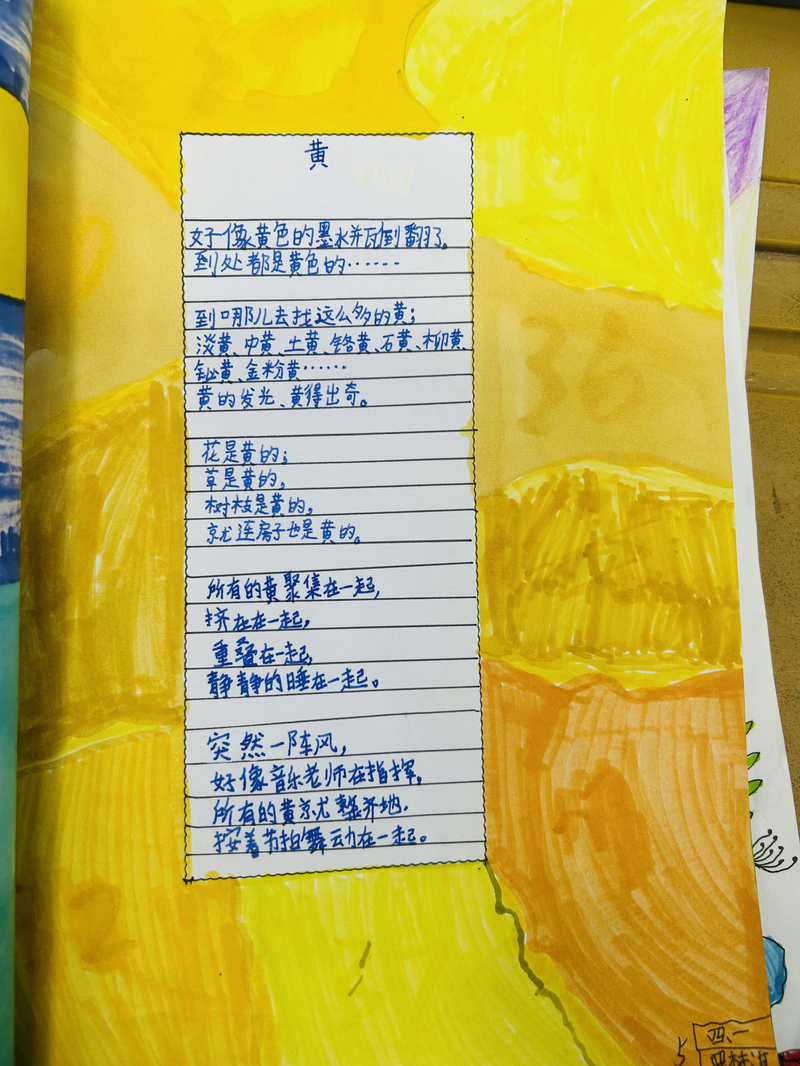 黄
好像黄色的墨水瓶倒翻了,
到处都是黄色的……
到哪儿去找这么多的黄;
淡黄、中黄、土黄、铬黄、石黄、柳黄、
铋黄、金粉黄……
黄的发光、黄得出奇。
花是黄的;
草是黄的,
树枝是黄的,
就连房子也是黄的。
所有的黄聚集在一起,
挤在在一起,
重叠在一起,
静静的睡在一起。
突然一阵风,
好像音乐老师在指挥,
所有的黄就整齐地.
按着节拍舞动在一起。
5
四、一